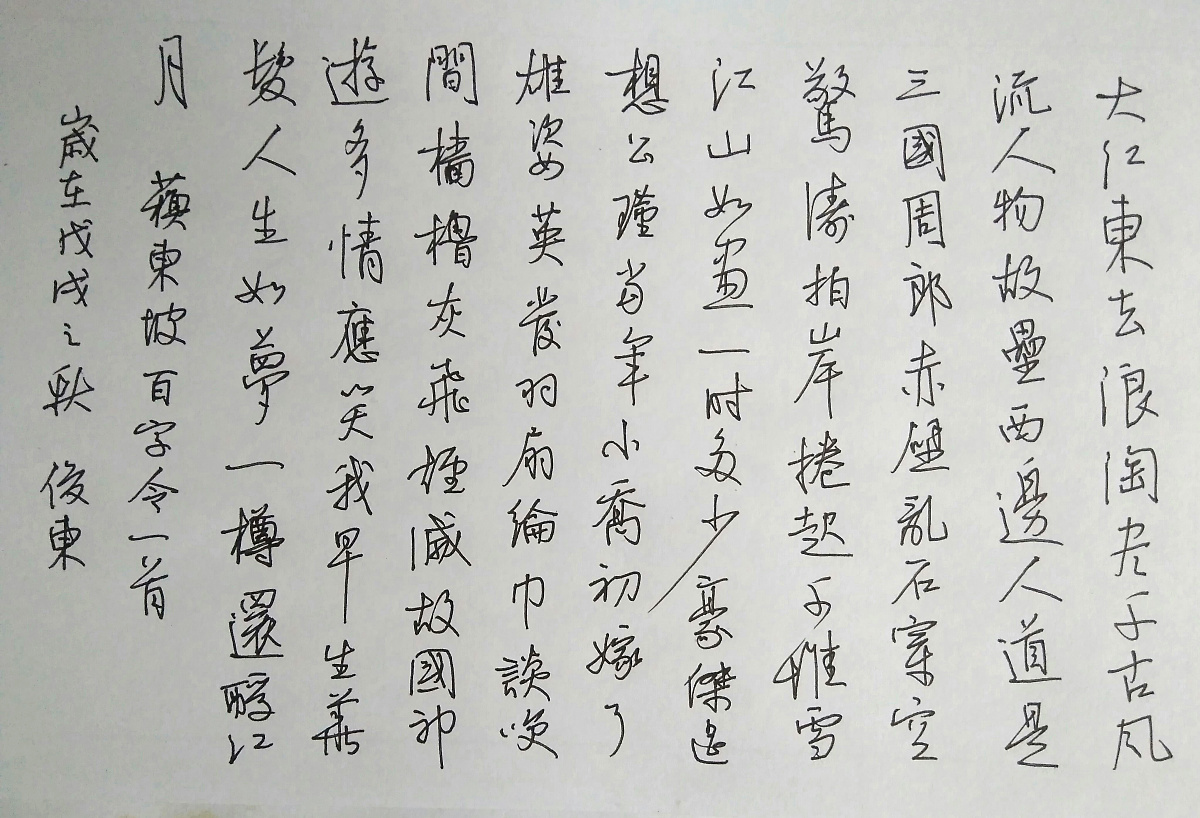 大江東去浪淘尽千古风
流人物故壘西邊人道是
三國周郎赤壁亂石穿空
驚濤拍岸捲起千堆雪
江山如畫一时多少豪傑遥
想公瑾当年小喬初嫁了
雄姿英發羽扇綸巾談笑
間檣櫓灰飛煙滅故國神
遊多情應笑我早生華
髮人生如夢一樽還酹江
月 蘇東坡百字令一首
歲在戊戌之秋 俊東